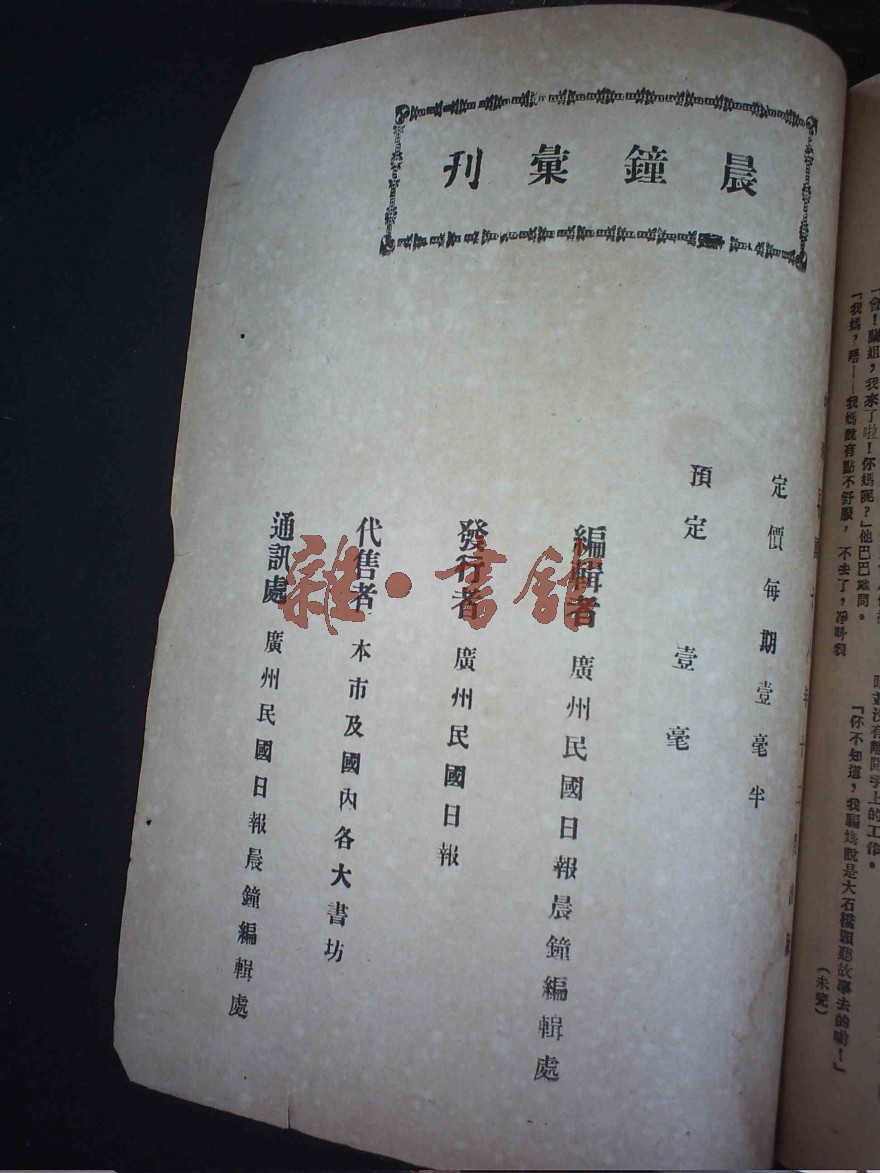 晨鐘彙刊
定價每期壹毫半
預定　壹毫
編輯者　廣州民國日報晨鐘編輯處
發行者　廣州民國日報
代售者　本市及國內各大書坊
通訊處　廣州民國日報晨鐘編輯處
雜·書館
我來了啦！你媽呢？」他巴巴地問。
「我媽？唔——我媽說有點不舒服，不去了，淨呌我
並沒有離開手上的工作。
「你不知道，我騙媽說是大石橋頭聽故事去的喲！」
（未完）